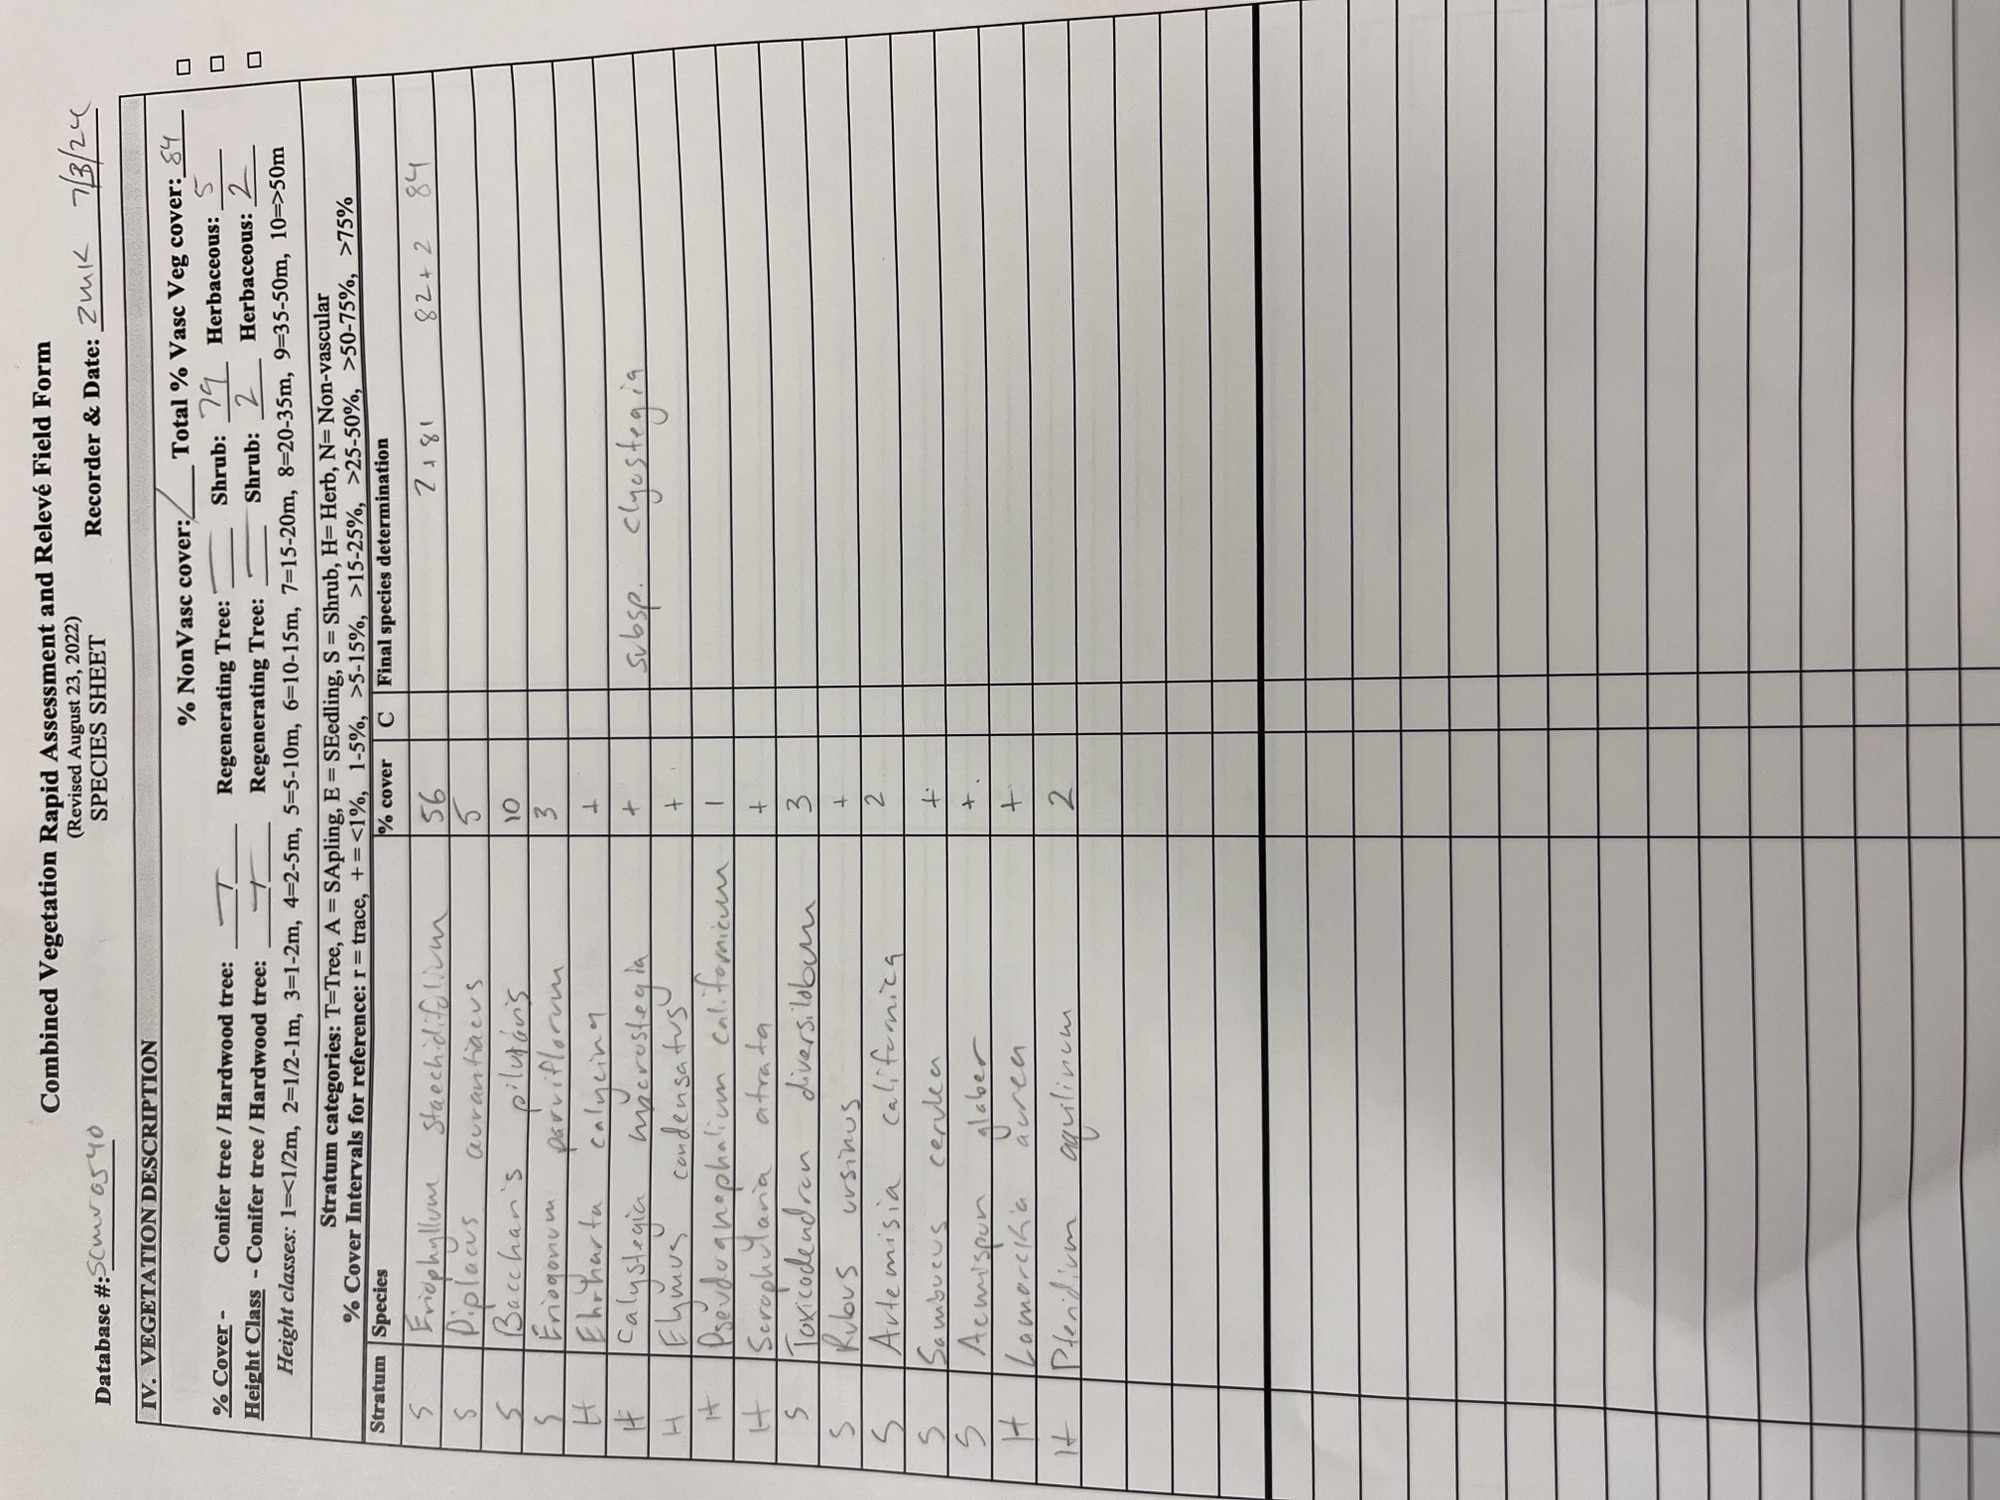 Combined Vegetation Rapid Assessment and Relevé Field Form
(Revised August 23, 2022)
Database #: SCMVR0540 SPECIES SHEET Recorder & Date: ZMK 7/3/24
IV. VEGETATION DESCRIPTION
% NonVasc cover: / Total % Vasc Veg cover: 84 □
% Cover - Conifer tree / Hardwood tree: — / — Regenerating Tree: — Shrub: 79 Herbaceous: 5 □
Height Class - Conifer tree / Hardwood tree: — / — Regenerating Tree: — Shrub: 2 Herbaceous: 2 □
Height classes: 1=<1/2m, 2=1/2-1m, 3=1-2m, 4=2-5m, 5=5-10m, 6=10-15m, 7=15-20m, 8=20-35m, 9=35-50m, 10=>50m
Stratum categories: T=Tree, A = SApling, E = SEedling, S = Shrub, H= Herb, N= Non-vascular
% Cover Intervals for reference: r = trace, + = <1%, 1-5%, >5-15%, >15-25%, >25-50%, >50-75%, >75%
Stratum Species % cover C Final species determination
S Eriophyllum staechidifolium 56 2+81 82+2 84
S Diplacus aurantiacus 5
S Baccharis pilularis 10
S Eriogonum parviflorum 3
H Ehrharta calycina +
H Calystegia macrostegia + subsp. clycostegia
H Elymus condensatus +
H Pseudognaphalium californicum 1
H Scrophularia atrata +
S Toxicodendron diversilobum 3
S Rubus ursinus +
S Artemisia californica 2
S Sambucus cerulea +
S Acmispon glaber +.
H Lamarckia aurea +
H Pteridium aquilinum 2